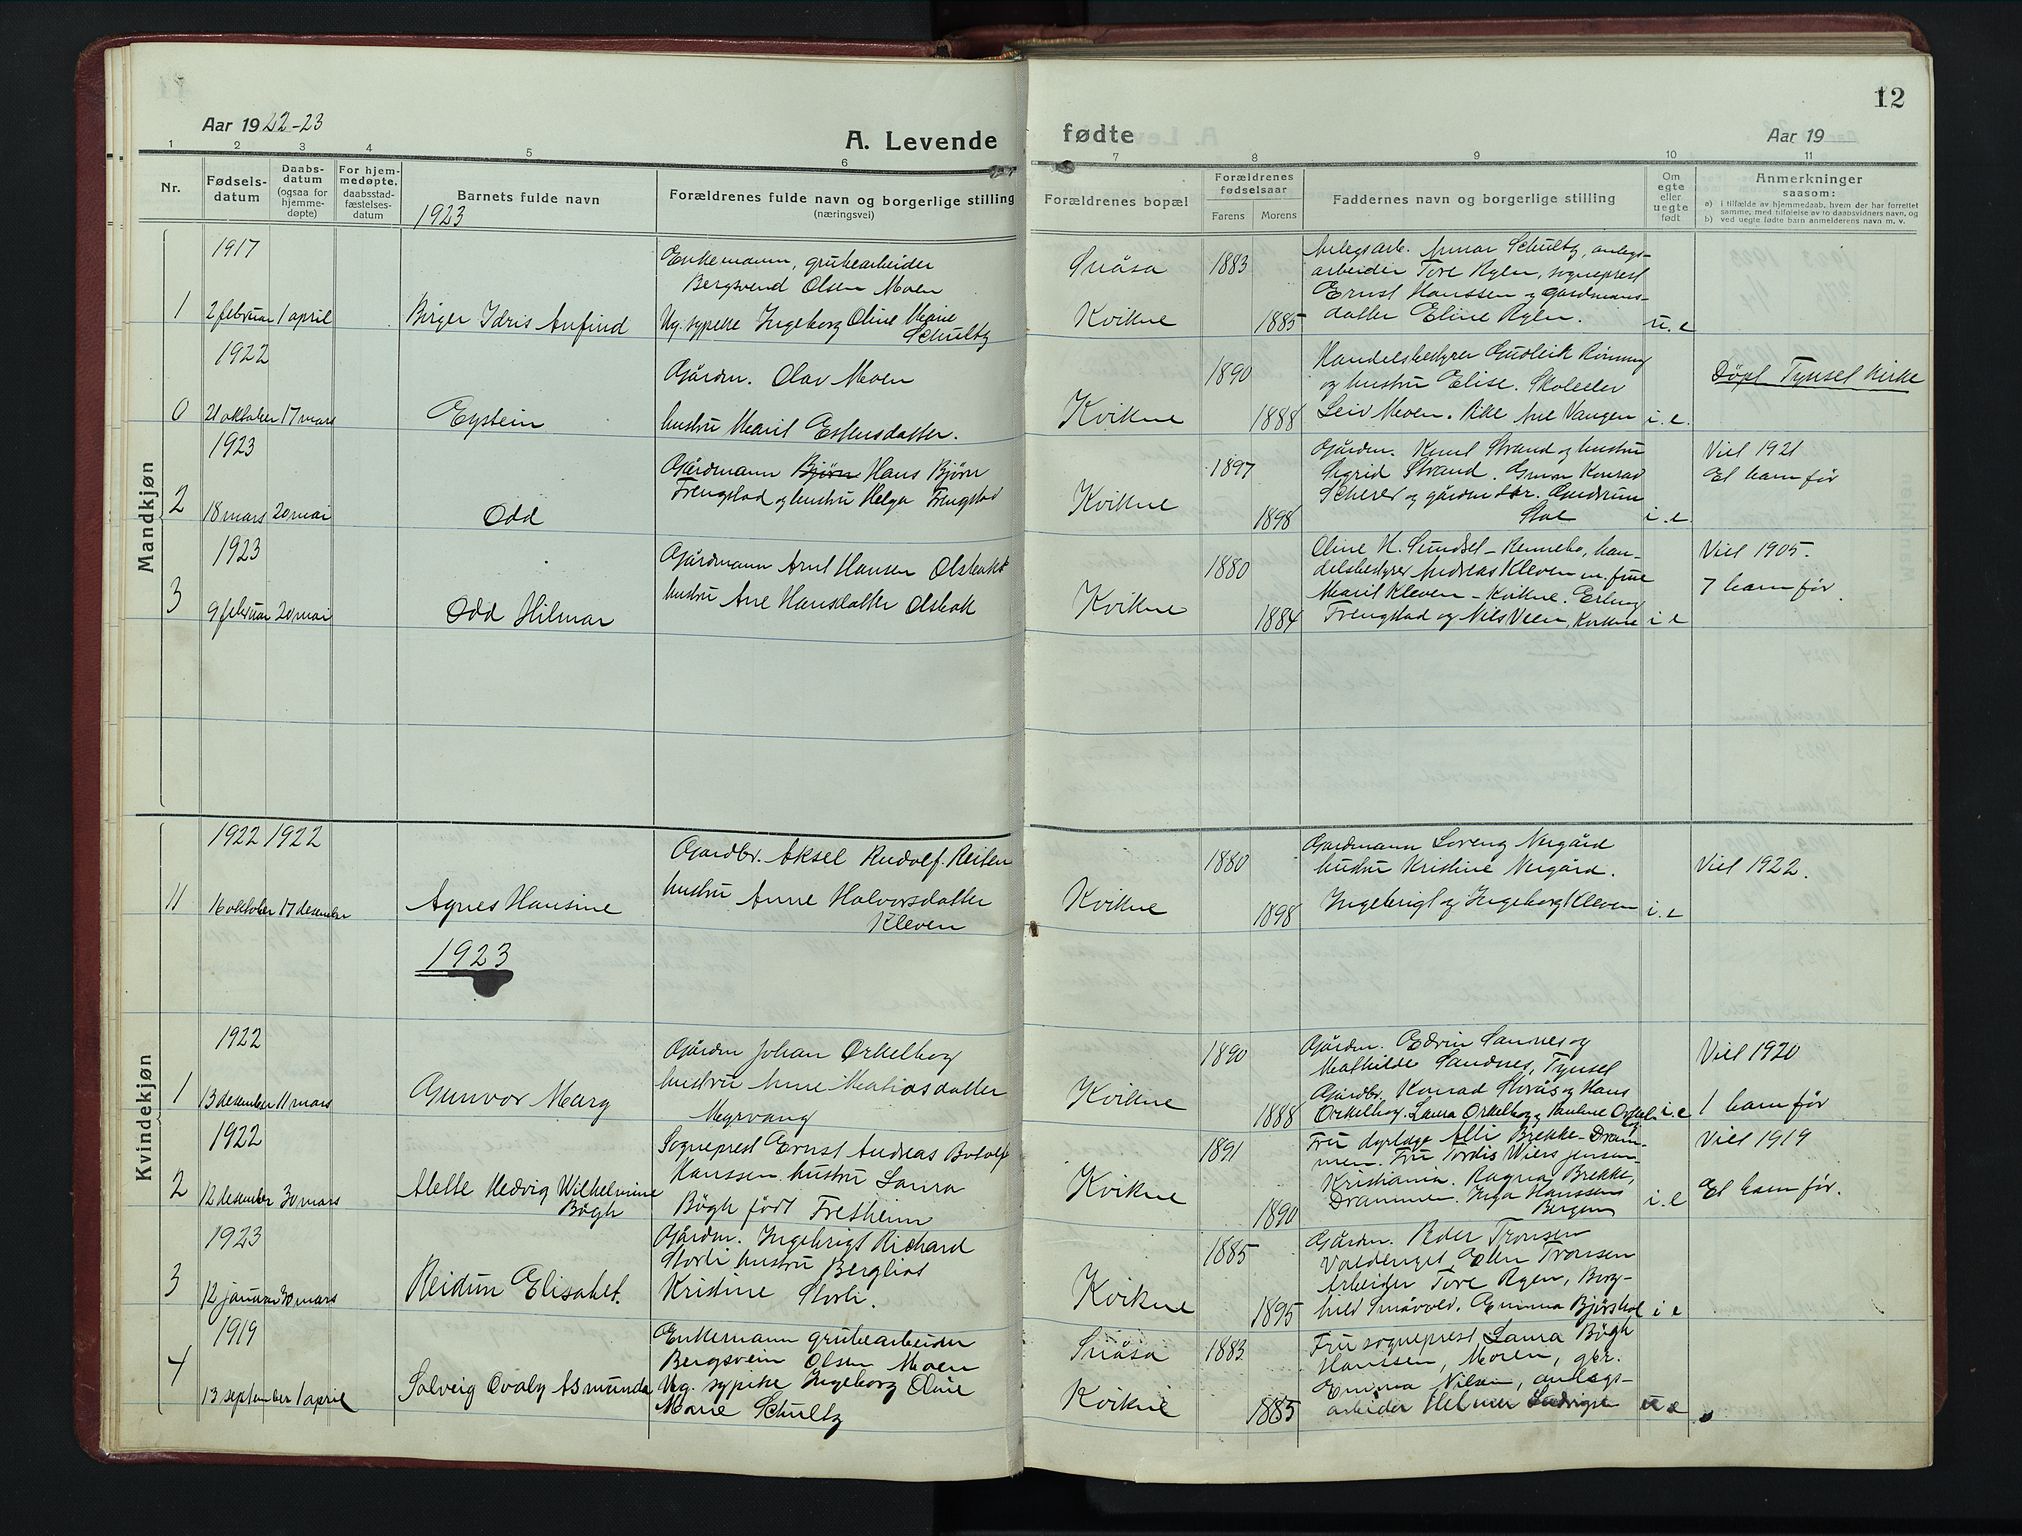 12
Aar 1922-23
A. Levende fødte
Aar 19
1 2 3 4 5 6 7 8 9 10 11
Nr.
Fødsels-
datum
Daabs-
datum
(ogsaa for
hjemme-
døpte)
For hjem-
medøpte,
daabsstad-
fæstelses-
datum
Barnets fulde navn
1923
Forældrenes fulde navn og borgerlige stilling
(næringsvei)
Forældrenes bopæl
Forældrenes
fødselsaar
Farens Morens
Faddernes navn og borgerlige stilling
Om
egte
eller
uegte
født
Anmerkninger
saasom:
a) i tilfælde av hjemmedaab, hvem der har forrettet
samme, med tilføielse av to daabsvidners navn, og
b) ved uegte fødte barn anmelderens navn m. v.
Mandkjøn
1917
1 2 februar 1 april
Birger Idris Anfind
Enkemann, grubearbeider
Bergsvend Olsen Moen
Ug. sypike Ingeborg Oline Marie
Schultz
Snåsa 1883
Kvikne 1885
Anlegsarb. Annar Schultz, anlegs-
arbeider Tore Ryen, sogneprest
Ernst Hanssen og Gardmans-
datter Eline Ryen.
u.e
1922
0 21 oktober 17 mars
Eystein
Gårdm. Olav Moen
hustru Marit Estensdatter.
1890
Kvikne 1888
Handelsbestyrer Gudleik Rønning
og hustru Elise. Skoleelev
Leiv Moen. Pike Ane Vangen
i.e.
Døpt Tynset Kirke
1923
2 18 mars 20 mai
Odd
Gårdmann Bjørn Hans Bjørn
Frengstad og hustru Helga Frengstad
1897
Kvikne 1898
Gårdm. Knut Strand og hustru
Sigrid Strand. Konrad
Scherer og gårdm.dtr. Gudrun
Stai
i.e.
Viet 1921
Et barn før
1923
3 9 februar 20 mai
Odd Hilmar
Gårdmann Arnt Hansen Olsbakk
hustru Ane Hansdatter Olsbak
1880
Kvikne 1884
Oline H. Sundset - Rennebo, han-
delsbestyrer Andreas Kleven m. frue
Marit Kleven - Kvikne. Erling
Frengstad og Nils Veen, Kvikne
i e
Viet 1905.
7 barn før.
Kvindekjøn
1922 1922
11 16 oktober 17 desember
Agnes Hansine
Gardbr. Aksel Rudolf Reiten
hustru Anne Halvorsdatter
Kleven
1880
Kvikne 1898
Gardmann Lorens Nergård
hustru Kristine Nergård.
Ingebrigt og Ingeborg Kleven
i.e
Viet 1922.
1923
1922
1 13 desember 11 mars
Gunvor Mary
Gårdm Johan Orkelbog
hustru Anne Matiasdatter
Myrvang
1890
Kvikne 1888
Gårdm. Edvin Sannes og
Mathilde Sandnes, Tynset
Gardbr. Konrad Storås og Hans
Orkelbog. Laura Orkelbog og Pauline Orkelbog
i.e
Viet 1920
1 barn før
1922
2 12 desember 30 mars
Alette Hedvig Wilhelmine
Bøgh
Sogneprest Ernst Andreas Botolf
Hanssen hustru Laura
Bøgh født Fretheim
1891
Kvikne 1890
Fru dyrlæge Alli Brekke - Dram-
men. Fru Tordis Wiers Jensen
Kristiania. Ragna Brekke,
Drammen. Inga Hanssen
Bergen
i.e
Viet 1919
Et barn før.
1923
3 12 januar 30 mars
Reidun Elisabet.
Gårdm. Ingebrigt Richard
Storli hustru Bergliot
Kristine Storli.
1885
Kvikne 1895
Gårdm. Peder Tronsen
Voldenget, Tronsen
Arbeider Tore Ryen, Borg-
hild Småvold. Emma
i e
1919
4 13 september 1 april
Solveig Ovaly Asmunda
Enkemann grubearbeider
Bergsvein Olsen Moen
Ug. sypike Ingeborg Oline
Marie Schultz
Snåsa 1883
Kvikne 1885
Fru sogneprest Laura Bøgh
Hanssen, Moren, gbr.
Emma Nilsen, anlegs-
arbeider Helmer Ludvigsen
u e